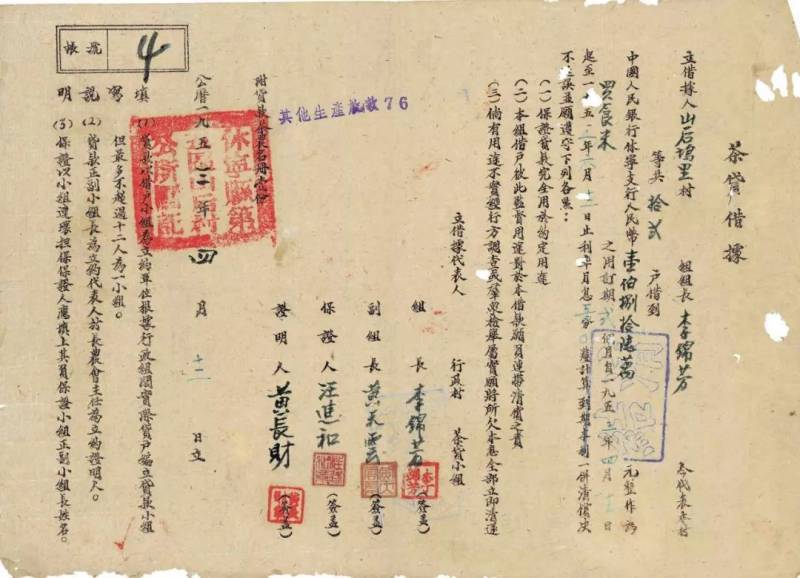 茶貸借據
立借據人山后塢里村 組組長 李錦芳 代表本村
等共 拾弍 戶借到
中國人民銀行休寧支行人民幣 壹伯捌拾 萬 元整作為
買食米 之用訂期 個月自一九五 年四月十二日
起至一九五 年 月十二日止利率月息 計算到期本利一併清償決
不延誤並願遵守下列各點:
(一)保證貸款完全用於約定用途
(二)本組借戶彼此監督用途對於本借款願負連帶清償之責
(三)倘有用途不實經行方調查或羣眾檢舉屬實願將所欠本息全部立即清還
立借據代表人 行政村 茶貸小組
組 長 李錦芳 (簽盖)
副組長 黄天雲 (簽盖)
保證人 汪進和 (簽盖)
證明人 黄長財 (簽盖)
其他生產放收76
附貸款 名冊壹份
公曆一九五二年 四 月 十二 日立
休寧縣第
填寫說明
(1)貸款以借戶小組為立約單位根據行政組閭實際貸戶編立貸款小組
但最多不超過十二人為一小組。
(2)貸款正副小組長為立約代表人村長農會主任為立約證明人。
(3)保證以小組連環担保保證人應填上其負保證小組正副小組長姓名。
帳號
4